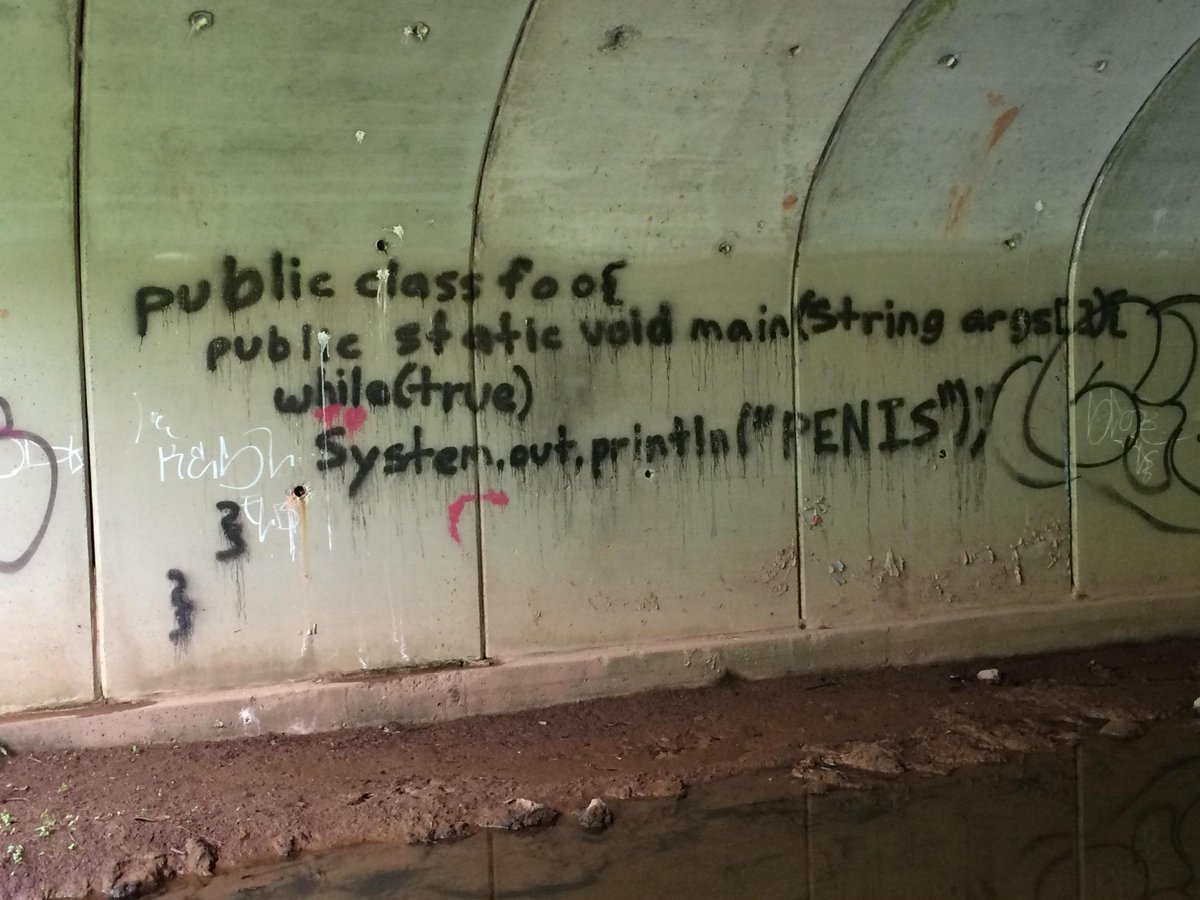 public class foo{
public static void main(String args[]){
while(true)
System.out.println("PENIS");
}
}